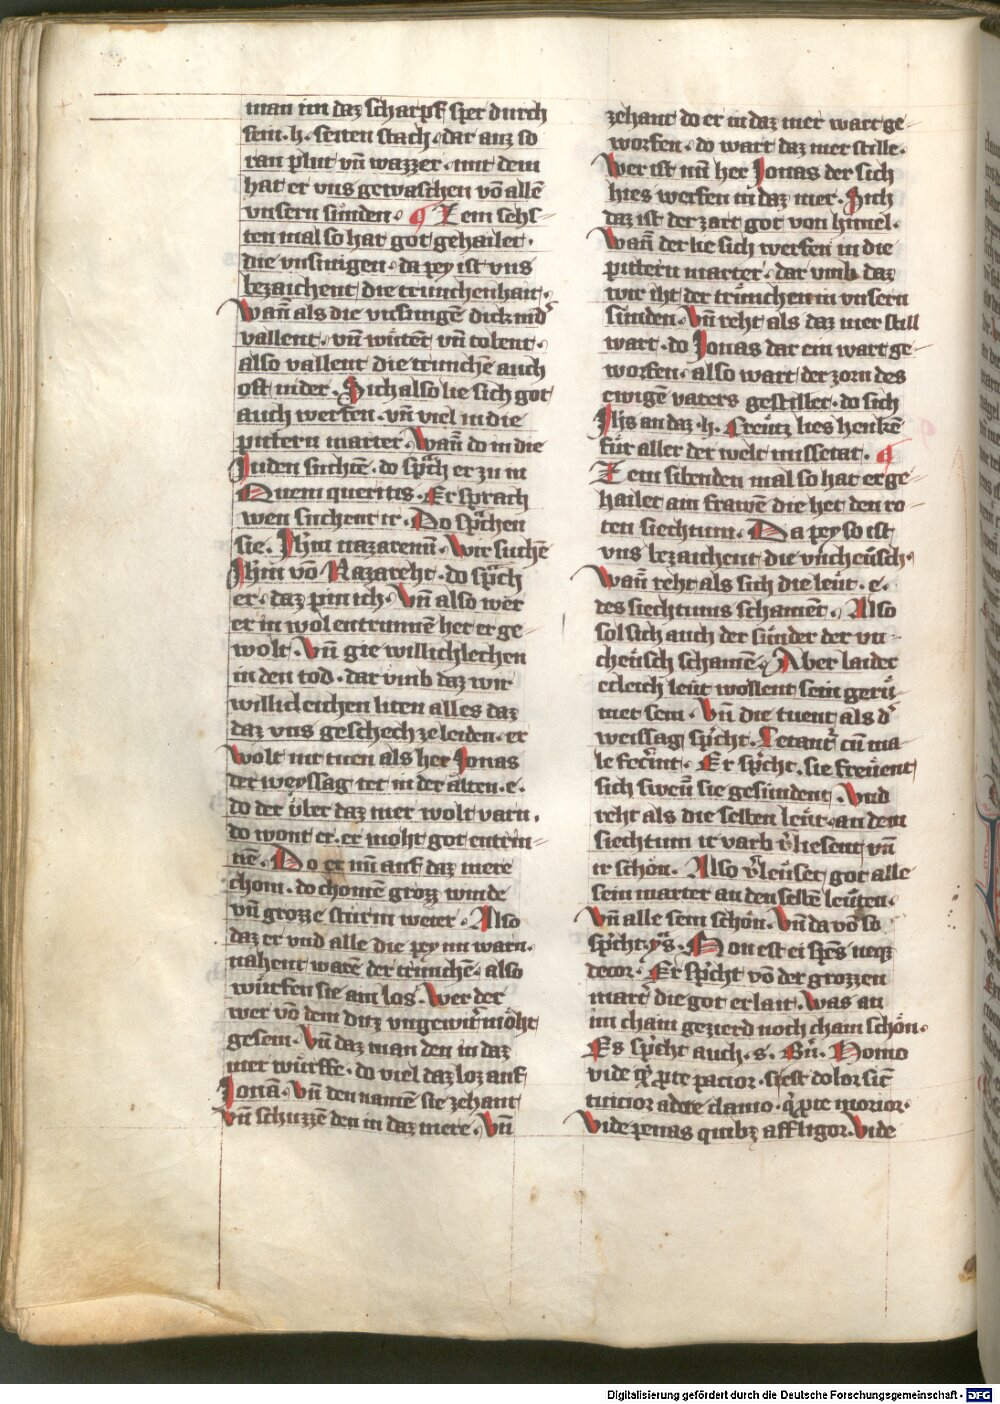 man im daz scharpf sper durch
sein .h. seiten stach. dar auz so
ran plut vn̄ wazzer. mit dem
hat er vns gewaschen vō allē
vnsern sünden. ¶ Zem sehs-
ten mal so hat got gehailet.
die vnsinigen. da pey ist vns
bezaichent die trunchenhait.
Wan̄ als die vnsingē dick nidͬ
vallent. vn̄ wütēt vn̄ tobent.
also vallent die trunchē auch
oft nider. Sich also lie sich got
auch werfen. vn̄ viel in die
pittern marter. Wan̄ do in die
Juden suchtē. do sprach er zu in
Quem queritis. Er sprach
wen suchent ir. Do sprachen
sie. Jhm nazarenū. Wir suchē
Jhm vō Nazareht. do sprach
er. daz pin ich. Vn̄ also wer
er in wol entrunnē het er ge-
wolt. Vn̄ gie willichlechen
in den tod. dar vmb daz wir
willicleichen liten alles daz
daz vns geschech ze leiden. er
wolt nit tuen als her Jonas
der weyssag tet in der alten .e.
do der v̈ber daz mer wolt varn.
do wont er. er moht got entrin-
nē. Do er nū auf daz mere
chom. do chomē grozz winde
vn̄ grozze sturm weter. Also
daz er vnd alle die pey im warn.
nahent warē der trunchē. also
würfen sie ain los. Wer der
wer vō dem ditz vngewit̄ möht
gesein. Vn̄ daz man den in daz
mer würffe. do viel daz loz auf
Jonā. Vn̄ den namē sie zehant
vn̄ schuzzē den in daz mere. Vn̄
zehant do er in daz mer wart ge-
worfen. do wart daz mer stille.
Wer ist nū her Jonas der sich
hies werfen in daz mer. Sich
daz ist der zart got von himel.
Wan̄ der lie sich werfen in die
pittern marter. dar vmb daz
wir iht der trünchen in vnsern
sünden. Vn̄ reht als daz mer still
wart. do Jonas dar ein wart ge-
worfen. also wart der zorn des
ewigē vaters gestillet. do sich
Jhs an daz .h. Creütz lies henkē
für aller der welt missetat. ¶
Zem sibenden mal so hat er ge-
hailet ain frawē die het den ro-
ten siechtum. Da pey so ist
vns bezaichent die vncheüsch.
Wan̄ reht als sich die leüt .e.
des siechtums schamēt. Also
sol sich auch der sünder der vn-
cheüsch schamē. Aber laider
etleich leüt wollent sein gerü-
met sein. Vn̄ die tuent als dͬ
weissag spricht. Letant̄ cū ma-
le fec̄int. Er spricht. sie freüent
sich swen̄ sie gesündent. Vnd
reht als die selben leüt. an dem
siechtum ir varb v̄liesent vn̄
ir schön. Also v̄leüset got alle
sein marter an den selbē leüten.
Vn̄ alle sein schön. Vn̄ da vō so
spricht ysͣ. Non est ei spēs neqꝫ
decor. Er spricht vō der grozzen
mart̄ die got erlait. Was an
im cham gezierd noch cham schön.
Es spricht auch .s. B̄n. Homo
vide q̄ p̄ te pacior. si est dolor sic̄
tuicior ad te clamo. q̄ p̄ te morior.
Vide penas quibꝫ affligor. Vide
Digitalisierung gefördert durch die Deutsche Forschungsgemeinschaft - DFG